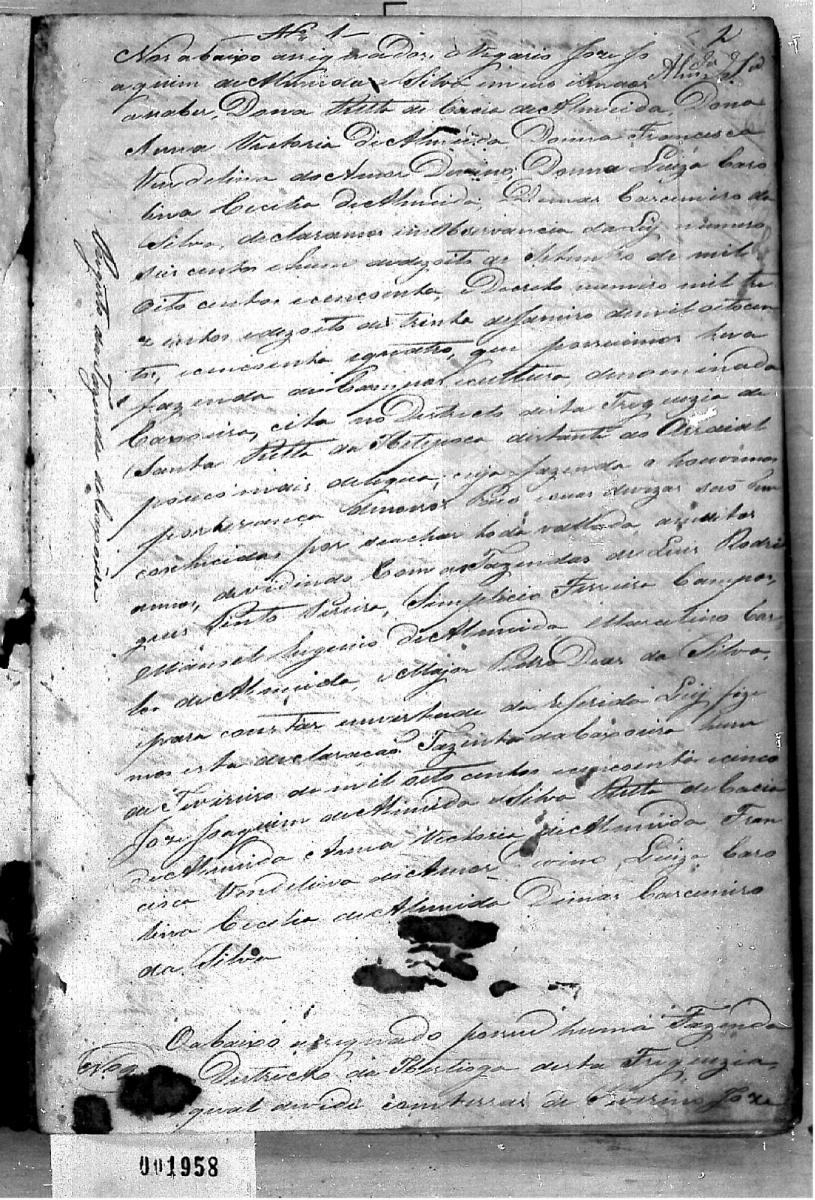 Nº 1
2
Nos abaixo assignados, o Vigario Joze Jo
aquim de Almeida e Silva em meo irmaos
a saber, Dona Ritta de Cacia de Almeida, Dona
Anna Victoria de Almeida Donna Francisca
Vendelina do Amor Devino, Donna Luiza Caro
lina Cecilia de Almeida, Dimas Carcemiro da
Silva, declaramos em Observancia da Ley numero
seis centos e hum de dezoito de Setembro de mil
oito centos e cincoenta, e Decreto numero mil tre
zentos e dezoito de trinta de Janeiro de mil oitocen
tos, e cincoenta e quatro, que possuimos huma
fazenda de Campos e cultura, denominada
Caxoeira, cita no Districto desta Freguezia de
Santa Ritta da Ibitipoca distante do Arraial
pouco mais de legua, cuja fazenda a houvemos
por heranca de nosso Pai e suas divizas são bem
conhecidas por se achar toda vallada, a muitos
annos, devidindo Com as Fazendas de Luis Rodri
gues Pinto Pereira, Simplicio Ferreira Campos,
Manoel Eugenio de Almeida Marcelino Car
los de Almeida, e Major Pedro Dias da Silva,
e para constar em vertude da referida Ley fize
mos esta declaração Fazenda da Caxoeira hum
de Fevereiro de mil oito centos e cincoenta e cinco
Joze Joaquim de Almeida e Silva Ritta de Cacia
de Almeida e Anna Victoria de Almeida Fran
cisca Vendelina do Amor Divino, Luiza Caro
lina Cecilia de Almeida Dimas Carcemiro
da Silva
Registo da Fazenda da Caxoeira
O abaixo assignado possue huma Fazenda
Nº 2
Districto da Ibertioga desta Freguezia,
a qual devide com terras de Severino Joze
001958